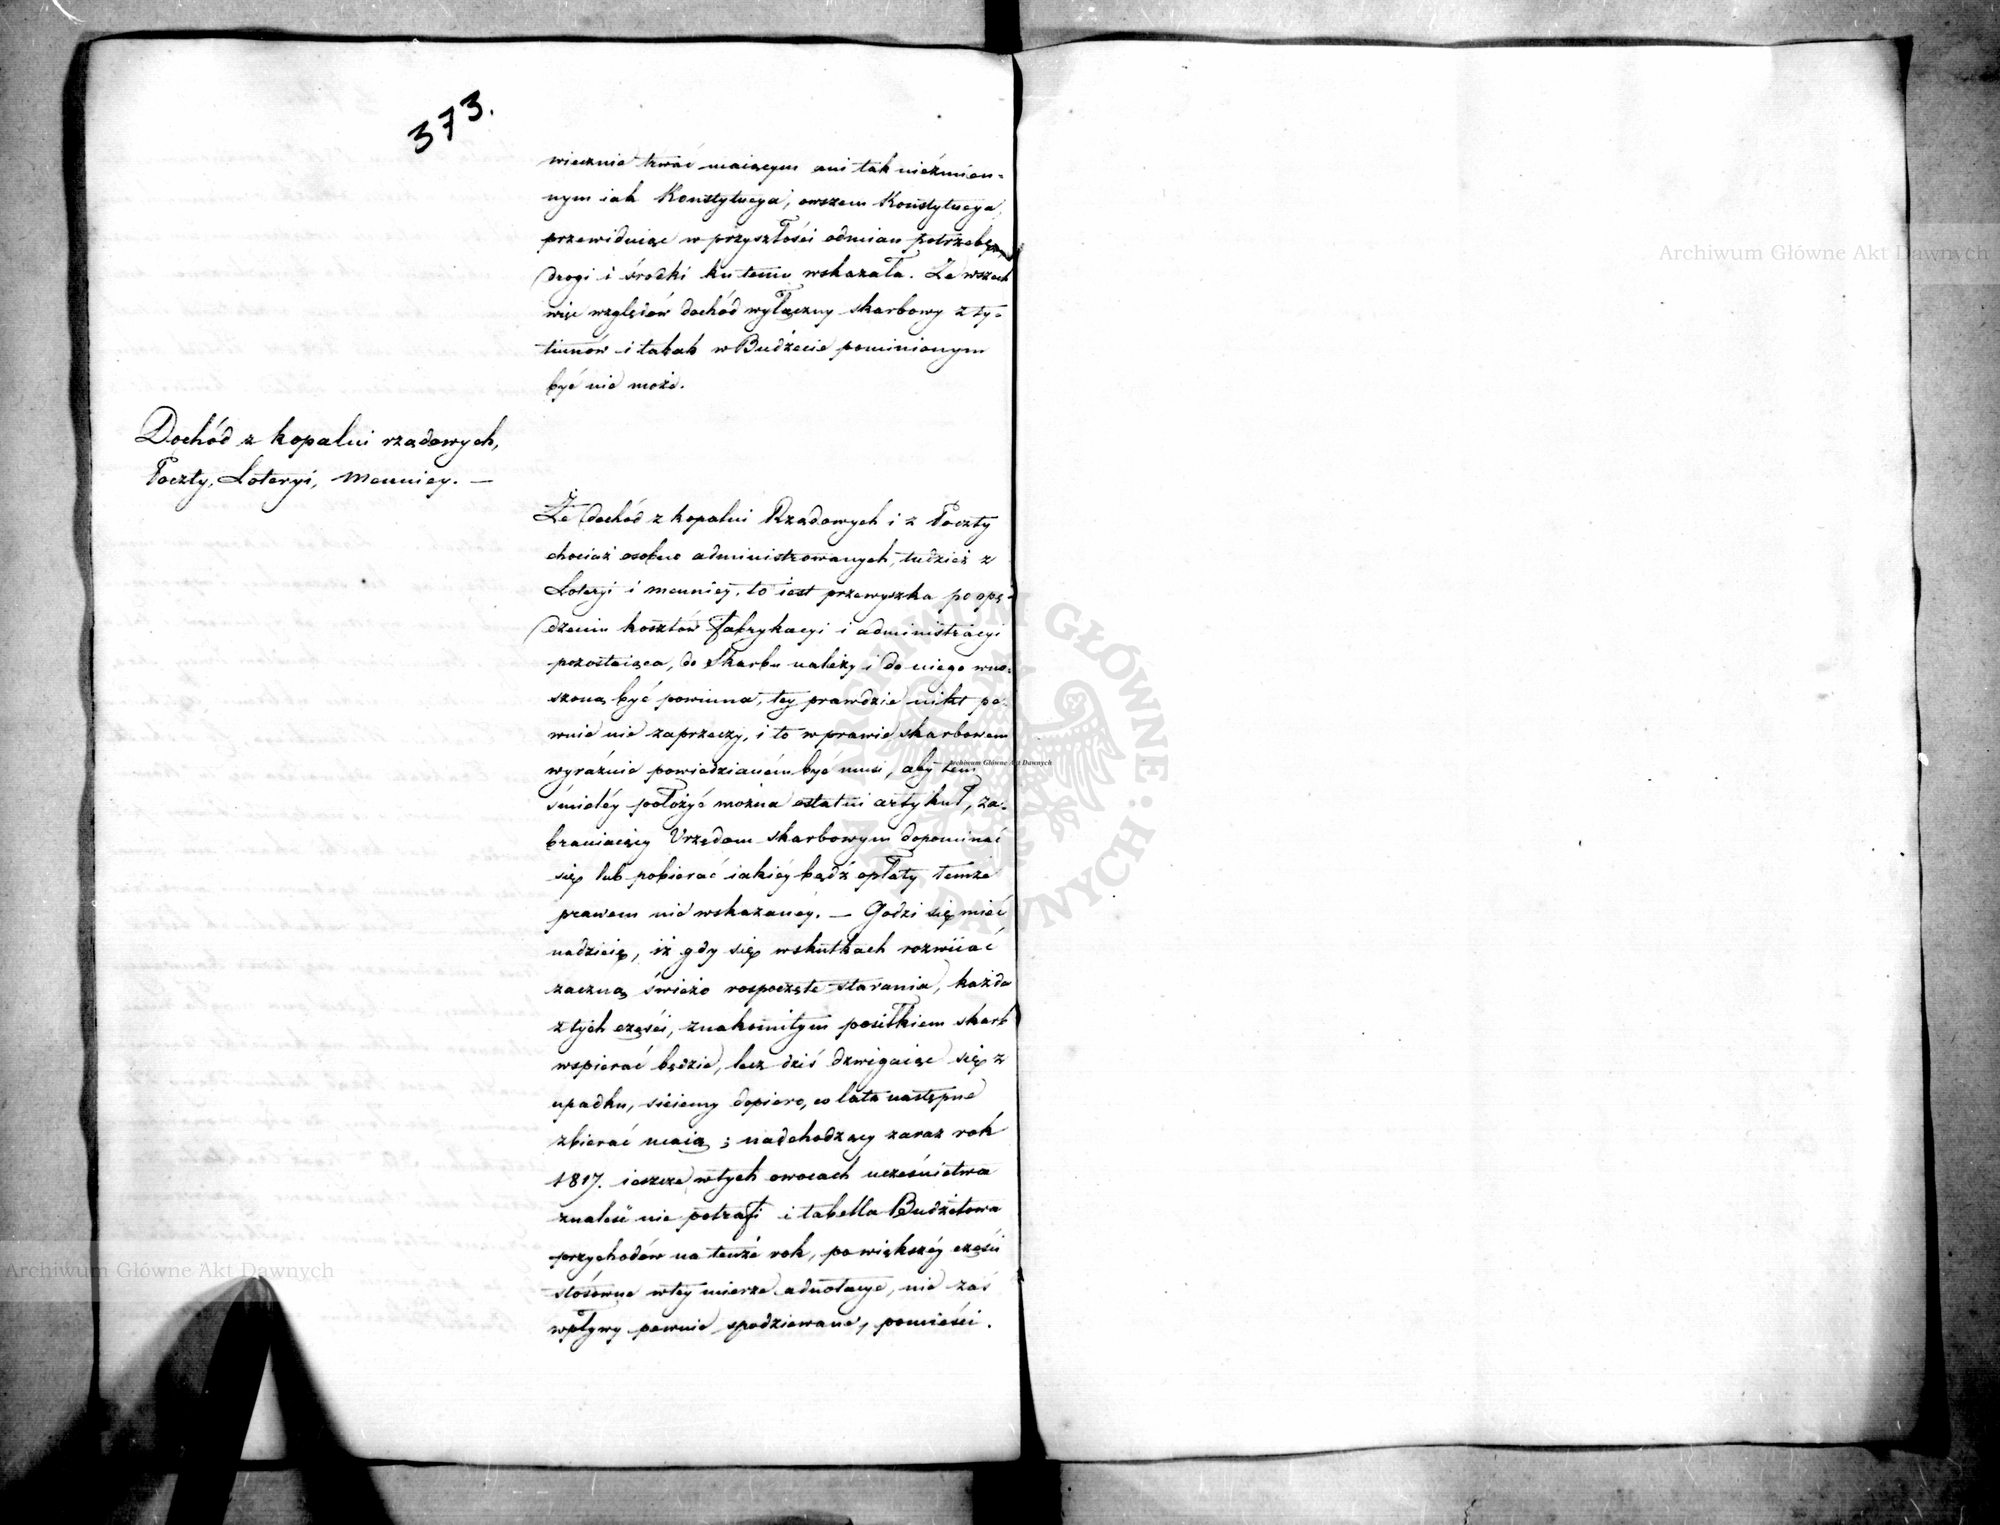 373.
wiecznie trwać maiącym ani tak nieźmien-
nym iak Konstytucya; owszem Konstytucya,
przewiduiąc w przyszłości odmian potrzebę,
drogi i środki ku temu wskazała. Ze wszech
więc względów dochód wyłączny skarbowy z ty-
tuniów i tabak w Budżecie pominionym
być nie może.
Dochód z kopalni rządowych,
Poczty, Loteryi, Mennicy. —
Że dochód z kopalni Rządowych i z Poczty
chociaż osobno administrowanych, tudzież z
Loteryi i mennicy, to iest przewyszka po opę-
dzeniu kosztów fabrykacyi i administracyi
pozostaiąca, do Skarbu należy i do niego wno-
szoną być powinna, tey prawdzie nikt pe-
wnie nie zaprzeczy, i to w prawie skarbowem
wyraźnie powiedzianém być musi, aby tem
śmieléy położyć można ostatni artykuł, za-
braniaiący Urzędom skarbowym dopominać
się lub pobierać iakiéy bądź opłaty temże
prawem nie wskazanéy. — Godzi się mieć
nadzieię, iż gdy się w skutkach rozwiiać
zaczną świeżo rospoczęte starania, każda
z tych części, znakomitym posiłkiem skarb
wspierać będzie, lecz dziś dzwigaiąc się z
upadku, sieiemy dopiero, co lata następne
zbierać maią; nadchodzący zaraz rok
1817. ieszcze w tych owocach uczesnictwa
znaleść nie potrafi i tabella Budżetowa
przychodów na tenże rok, po większéy części
stósowne w tey mierze adnotacye, nie zaś
wpływy pewnie spodziewane, pomieści.
Archiwum Główne Akt Dawnych
Archiwum Główne Akt Dawnych
Archiwum Główne Akt Dawnych
ARCHIWUM GŁÓWNE AKT DAWNYCH